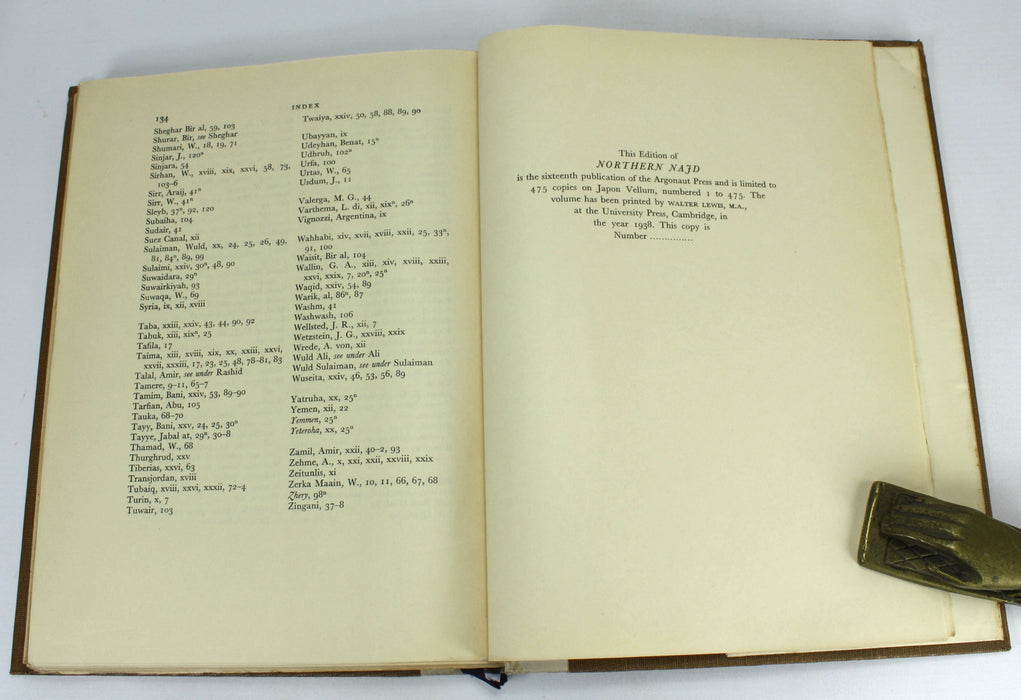 134
INDEX
Sheghar Bir al, 59, 103
Shurar, Bir, see Sheghar
Shumari, W., 18, 19, 71
Sinjar, J., 120ⁿ
Sinjara, 54
Sirhan, W., xviii, xix, xxvi, 58, 73,
103–6
Sirr, Araij, 41ⁿ
Sirr, W., 41ⁿ
Sleyb, 37ⁿ, 92, 120
Subaiha, 104
Sudair, 41
Suez Canal, xii
Sulaiman, Wuld, xx, 24, 25, 26, 49,
81, 84ⁿ, 89, 99
Sulaimi, xxiv, 30ⁿ, 48, 90
Suwaidara, 29ⁿ
Suwairkiyah, 93
Suwaqa, W., 69
Syria, ix, xii, xviii
Taba, xxiii, xxiv, 43, 44, 90, 92
Tabuk, xiii, xixⁿ, 25
Tafila, 17
Taima, xiii, xviii, xix, xx, xxiii, xxvi,
xxvii, xxxiii, 17, 23, 25, 48, 78–81, 83
Talal, Amir, see under Rashid
Tamere, 9–11, 65–7
Tamim, Bani, xxiv, 53, 89–90
Tarfian, Abu, 105
Tauka, 68–70
Tayy, Bani, xxv, 24, 25, 30ⁿ
Tayye, Jabal at, 29ⁿ, 30–8
Thamad, W., 68
Thurghrud, xxv
Tiberias, xxvi, 63
Transjordan, xviii
Tubaiq, xviii, xxvi, xxxii, 72–4
Turin, x, 7
Tuwair, 103
Twaiya, xxiv, 50, 58, 88, 89, 90
Ubayyan, ix
Udeyhan, Benat, 15ⁿ
Udhruh, 102ⁿ
Urfa, 100
Urtas, W., 65
Usdum, J., 11
Valerga, M. G., 44
Varthema, L. di, xii, xixⁿ, 26ⁿ
Vignozzi, Argentina, ix
Wahhabi, xiv, xvii, xviii, xxii, 25, 33ⁿ,
91, 100
Waisit, Bir al, 104
Wallin, G. A., xiii, xiv, xviii, xxiii,
xxvi, xxix, 7, 20ⁿ, 25ⁿ
Waqid, xxiv, 54, 89
Warik, al, 86ⁿ, 87
Washm, 41
Washwash, 106
Wellsted, J. R., xii, 7
Wetzstein, J. G., xxviii, xxix
Wrede, A. von, xii
Wuld Ali, see under Ali
Wuld Sulaiman, see under Sulaiman
Wuseita, xxiv, 46, 53, 56, 89
Yatruha, xx, 25ⁿ
Yemen, xii, 22
Yemmen, 25ⁿ
Yeteroha, xx, 25ⁿ
Zamil, Amir, xxii, 40–2, 93
Zehme, A., x, xxi, xxii, xxviii, xxix
Zeitunlis, xi
Zerka Maain, W., 10, 11, 66, 67, 68
Zhery, 98ⁿ
Zingani, 37–8
This Edition of
NORTHERN NAJD
is the sixteenth publication of the Argonaut Press and is limited to
475 copies on Japon Vellum, numbered 1 to 475. The
volume has been printed by WALTER LEWIS, M.A.,
at the University Press, Cambridge, in
the year 1938. This copy is
Number ...............